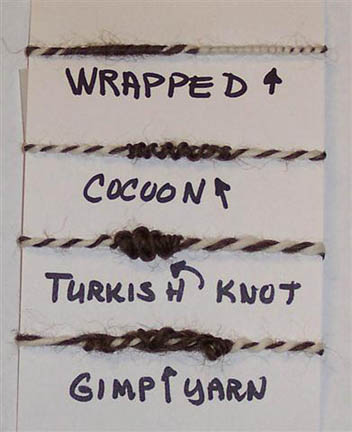 WRAPPED ↑
COCOON ↑
TURKISH KNOT
GIMP ↑ YARN